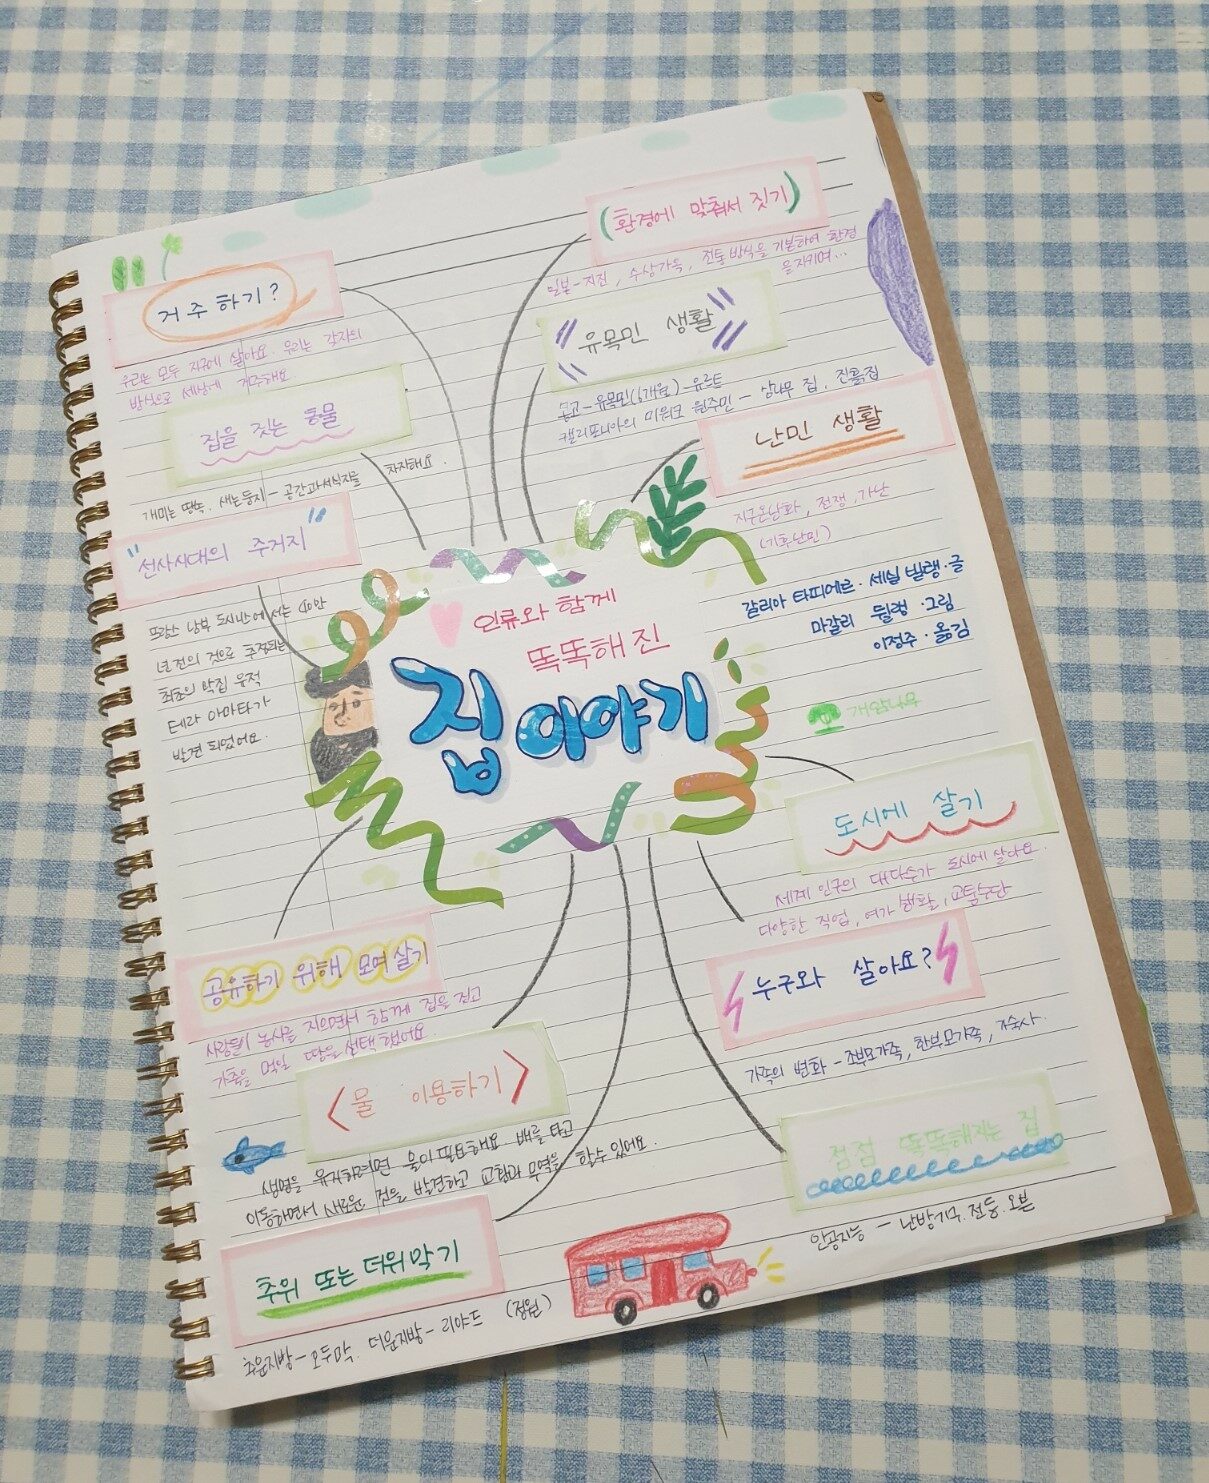 인류와 함께
똑똑해진
집 이야기
갈리아 타피에르 · 세실 빌랭 · 글
마갈리 뒬렁 · 그림
이정주 · 옮김
개암나무
거주하기?
우리는 모두 지구에 살아요. 우리는 각자의
방식으로 세상에 거주해요.
집을 짓는 동물
개미는 땅속, 새는 둥지 - 공간과 서식지를 차지해요.
"선사시대의 주거지"
프랑스 남부 도시 니스에서는 40만
년 전의 것으로 추정되는
최초의 막집 유적
테라 아마타가
발견 되었어요.
공유하기 위해 모여살기
사람들이 농사를 지으면서 함께 집을 짓고
가축을 먹일 땅을 선택했어요.
<물 이용하기>
생명을 유지하려면 물이 필요해요. 배를 타고
이동하면서 새로운 것을 발견하고 교환과 무역을 할 수 있어요.
추위 또는 더위 막기
추운지방 - 오두막, 더운지방 - 리야드 (정원)
(환경에 맞춰서 짓기)
일본 - 지진, 수상가옥, 전통 방식을 기본하여 환경
을 지키며...
유목민 생활
몽고 - 유목민(6개월) - 유르트
캘리포니아의 미워크 원주민 - 삼나무 집, 진흙집
난민 생활
지구온난화, 전쟁, 가난
(기후난민)
도시에 살기
세계 인구의 대다수가 도시에 살아요.
다양한 직업, 여가 생활, 교통수단
누구와 살아요?
가족의 변화 - 조부모가족, 한부모가족, 기숙사.
점점 똑똑해지는 집
인공지능 - 난방기구, 전등, 오븐